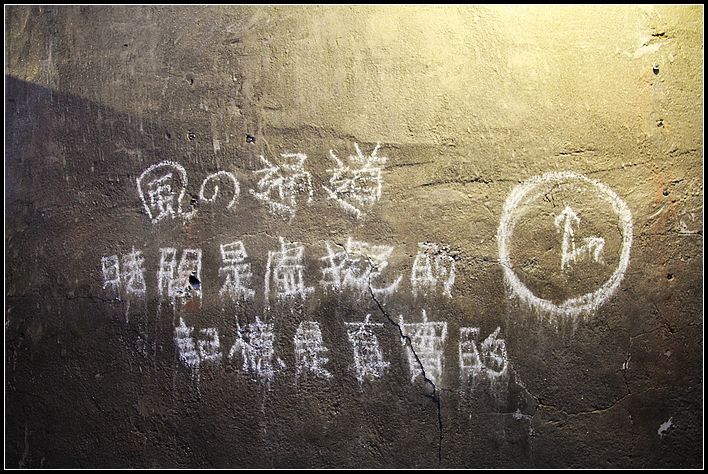 風の通道
時間是虛擬的
記憶是真實的
in